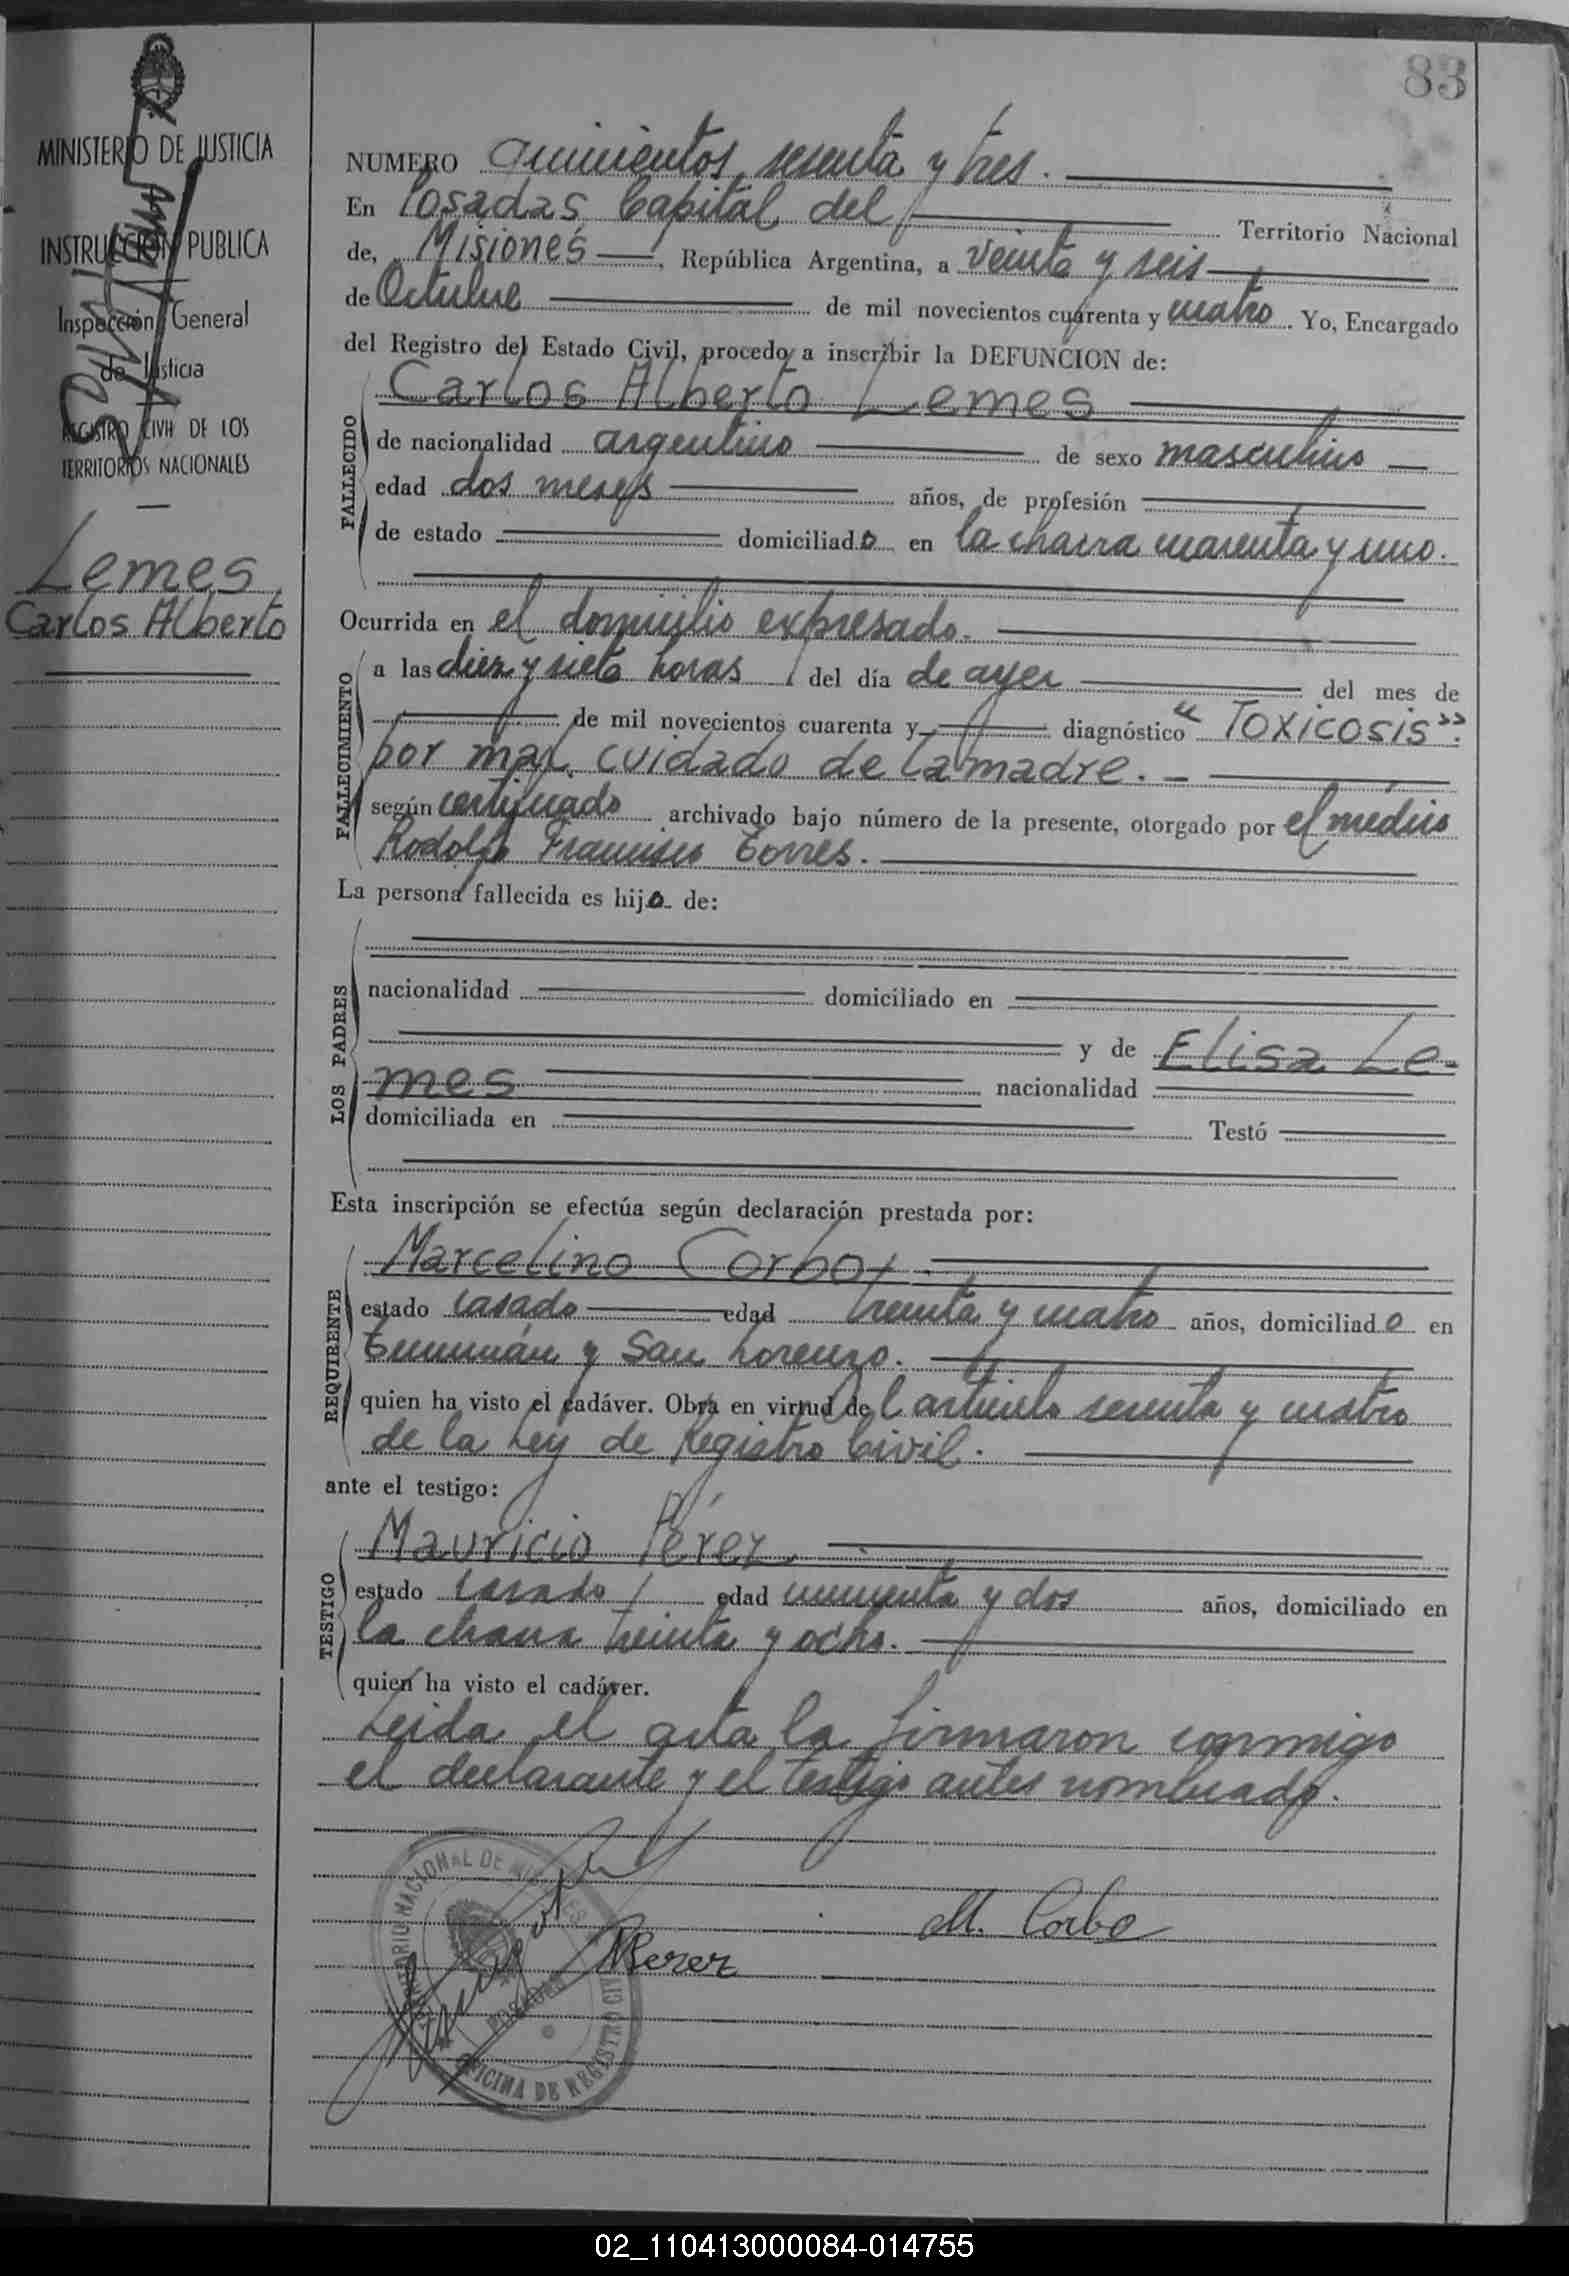 83
MINISTERIO DE JUSTICIA
INSTRUCCIÓN PUBLICA
Inspección General
de Justicia
REGISTRO CIVIL DE LOS
TERRITORIOS NACIONALES
Lemes
Carlos Alberto
NUMERO quinientos sesenta y tres.
En Posadas Capital del Territorio Nacional
de, Misiones, República Argentina, a veinte y seis
de Octubre de mil novecientos cuarenta y cuatro. Yo, Encargado
del Registro del Estado Civil, procedo a inscribir la DEFUNCION de:
FALLECIDO
Carlos Alberto Lemes
de nacionalidad argentino de sexo masculino
edad dos meses años, de profesión
de estado domiciliado en la chacra cuarenta y uno.
Ocurrida en el domicilio expresado.
FALLECIMIENTO
a las diez y siete horas del día de ayer del mes de
de mil novecientos cuarenta y diagnóstico "Toxicosis".
por mal cuidado de la madre.
según certificado archivado bajo número de la presente, otorgado por el médico
Rodolfo Francisco Torres.
La persona fallecida es hijo de:
LOS PADRES
nacionalidad domiciliado en
y de Elisa Le-
mes nacionalidad
domiciliada en Testó
Esta inscripción se efectúa según declaración prestada por:
REQUIRENTE
Marcelino Corbo
estado casado edad treinta y cuatro años, domiciliado en
Tucumán y San Lorenzo.
quien ha visto el cadáver. Obra en virtud del artículo sesenta y cuatro
de la Ley de Registro Civil.
ante el testigo:
TESTIGO
Mauricio Pérez
estado casado edad cincuenta y dos años, domiciliado en
la chacra treinta y ocho.
quien ha visto el cadáver.
Leida el acta la firmaron conmigo
el declarante y el testigo antes nombrado.
M. Corbo
MPerez
TERRITORIO NACIONAL DE MISIONES
POSADAS
OFICINA DE REGISTRO CIVIL
02_110413000084-014755